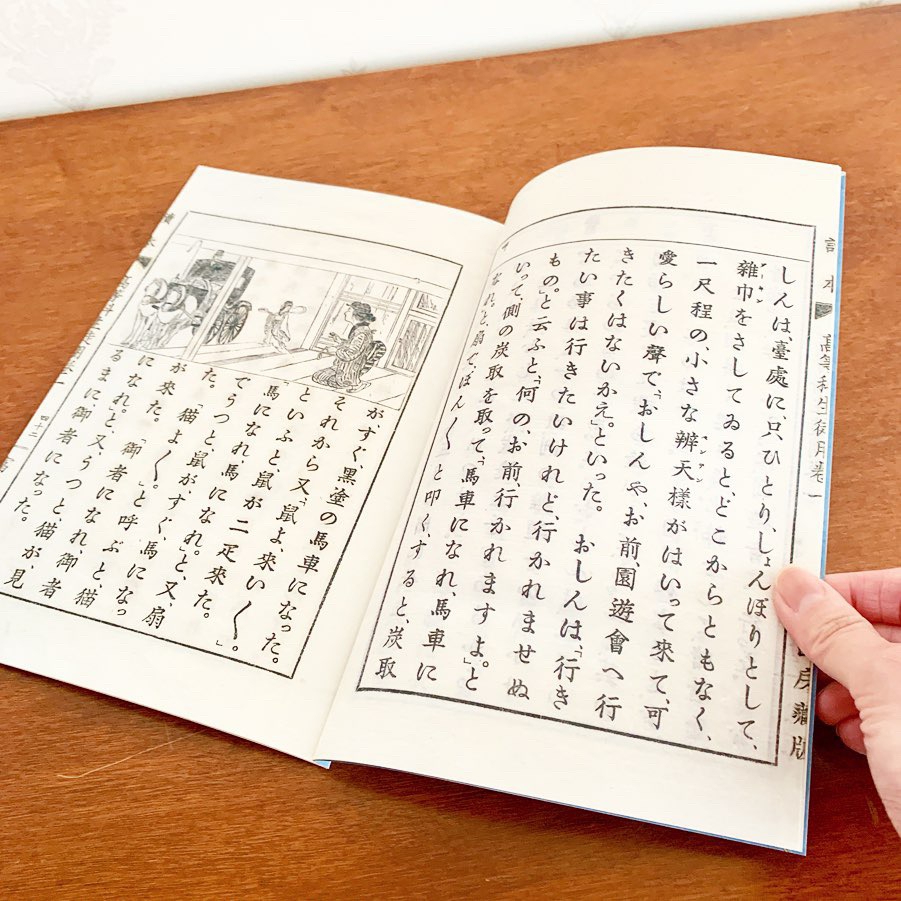 讀本
高等科生徒用卷一
房藏版
しんは、臺處に、只ひとり、しょんぼりとして、
雜巾をさしてゐると、どこからともなく、
一尺程の、小さな辨天樣がはいって來て、可
愛らしい聲で、「おしんや、お前、園遊會へ行
きたくはないかえ。」といった。　おしんは、「行き
たい事は行きたいけれど、行かれませぬ
もの。」と云ふと、「何の、お前、行かれますよ。」と
いって、側の炭取を取って、「馬車になれ、馬車に
なれ。」と、扇で、ぽん〱と叩く、すると、炭取
が、すぐ、黒塗の馬車になった。
それから又、「鼠よ、來い〱。」
といふと、鼠が二疋來た。
「馬になれ、馬になれ。」と、又、扇
でうつと、鼠が、すぐ、馬になっ
た。「猫よ〱。」と呼ぶと、猫
が來た。「御者になれ、御者
になれ。」と又うつと、猫が、見
るまに御者になった。
四十二